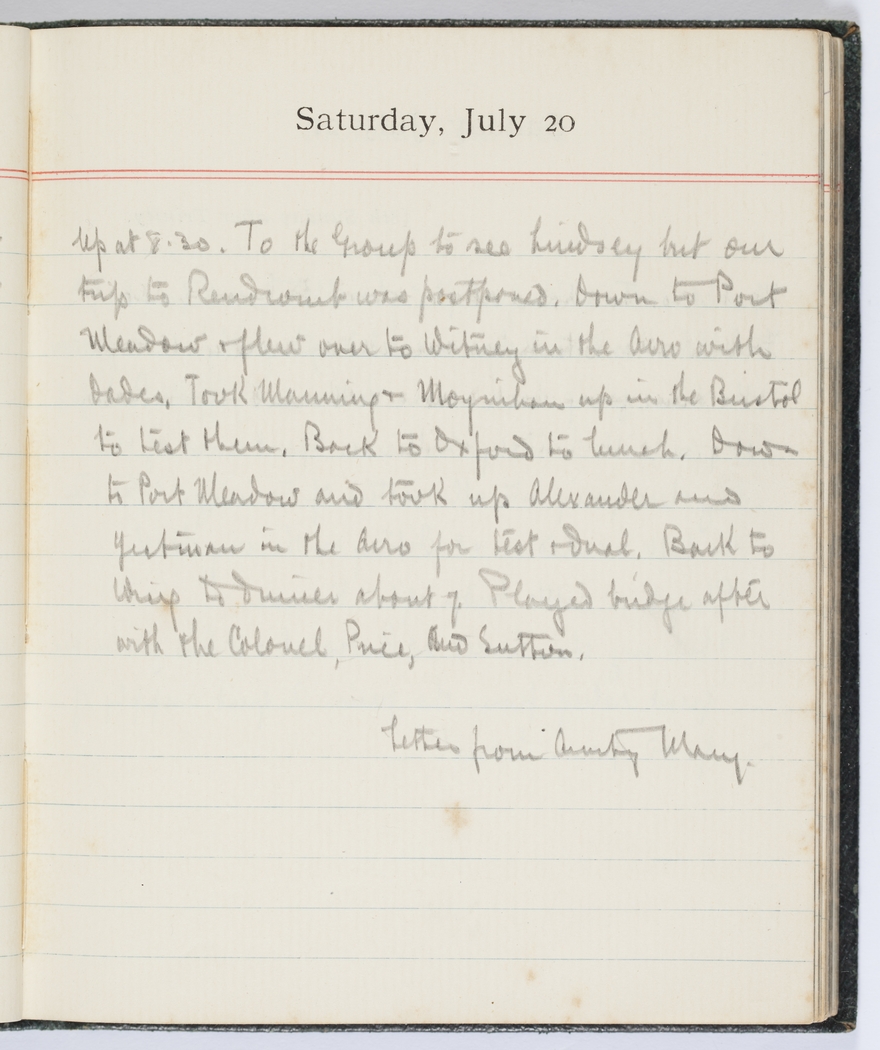 Saturday, July 20
Up at 8.30. To the Group to see Lindsey but our
trip to Rendcomb was postponed. Down to Port
Meadow & flew over to Witney in the Avro with
Dades. Took Manning & Moynihan up in the Bristol
to test them. Back to Oxford to lunch. Down
to Port Meadow and took up Alexander and
Yeatman in the Avro for test & dual. Back to
Wing to dinner about 7. Played bridge after
with the Colonel, Price, and Sutton.
Letter from Aunty Mary.